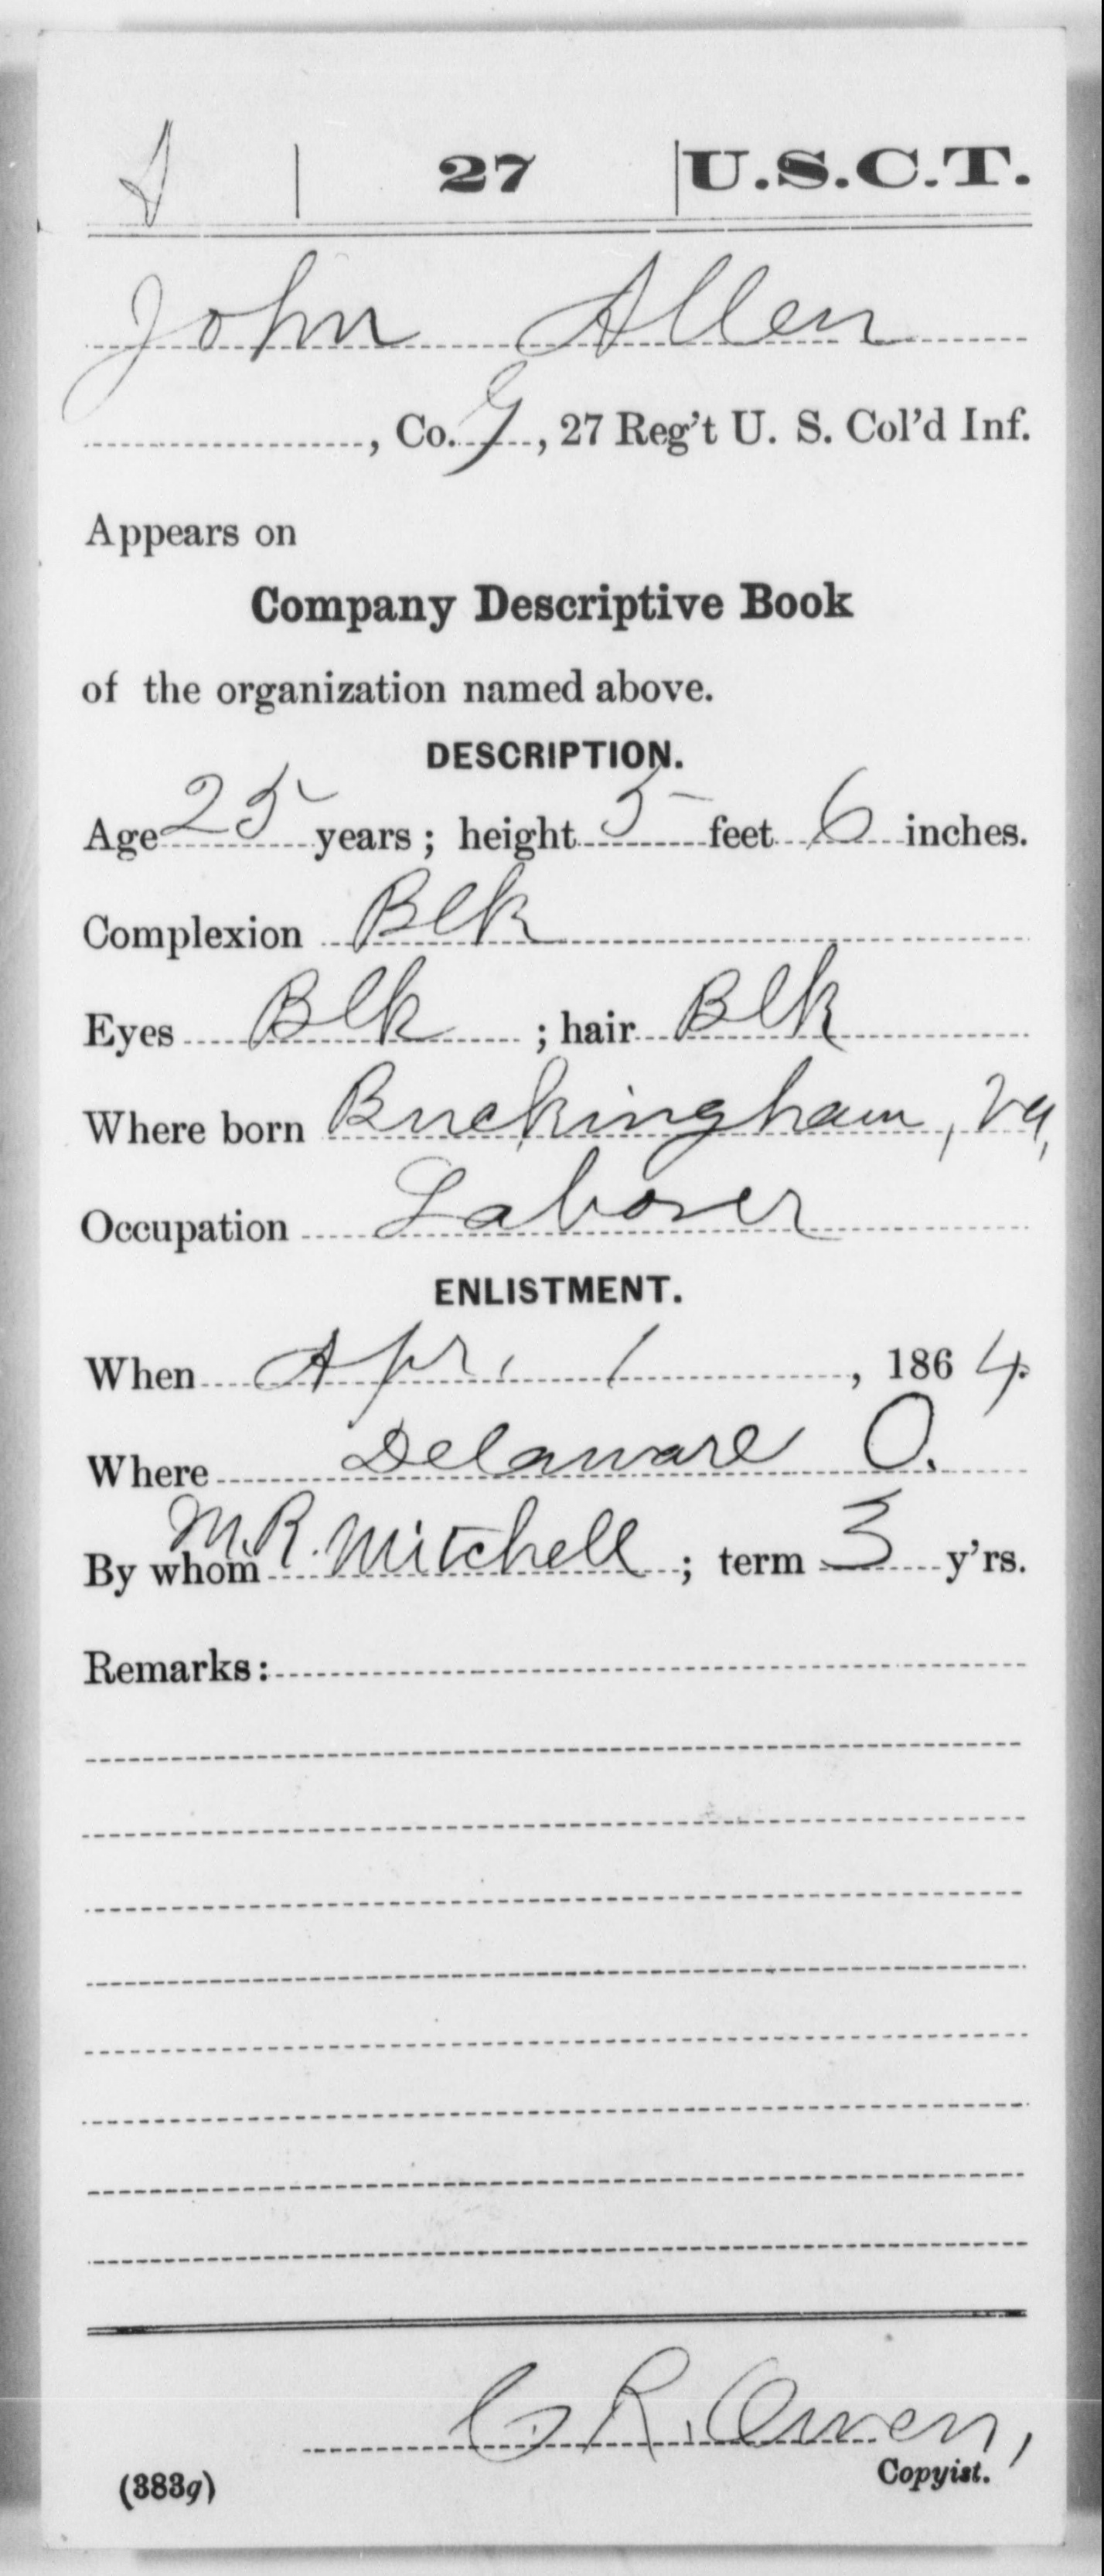 27 U.S.C.T.
John Allen
, Co. G, 27 Reg't U. S. Col'd Inf.
Appears on
Company Descriptive Book
of the organization named above.
DESCRIPTION.
Age 25 years; height 5 feet 6 inches.
Complexion Blk
Eyes Blk; hair Blk
Where born Buckingham, Va,
Occupation Laborer
ENLISTMENT.
When Apr. 1, 1864.
Where Delaware O.
By whom M.R. Mitchell; term 3 y'rs.
Remarks:
C R. Owen,
Copyist.
(383g)